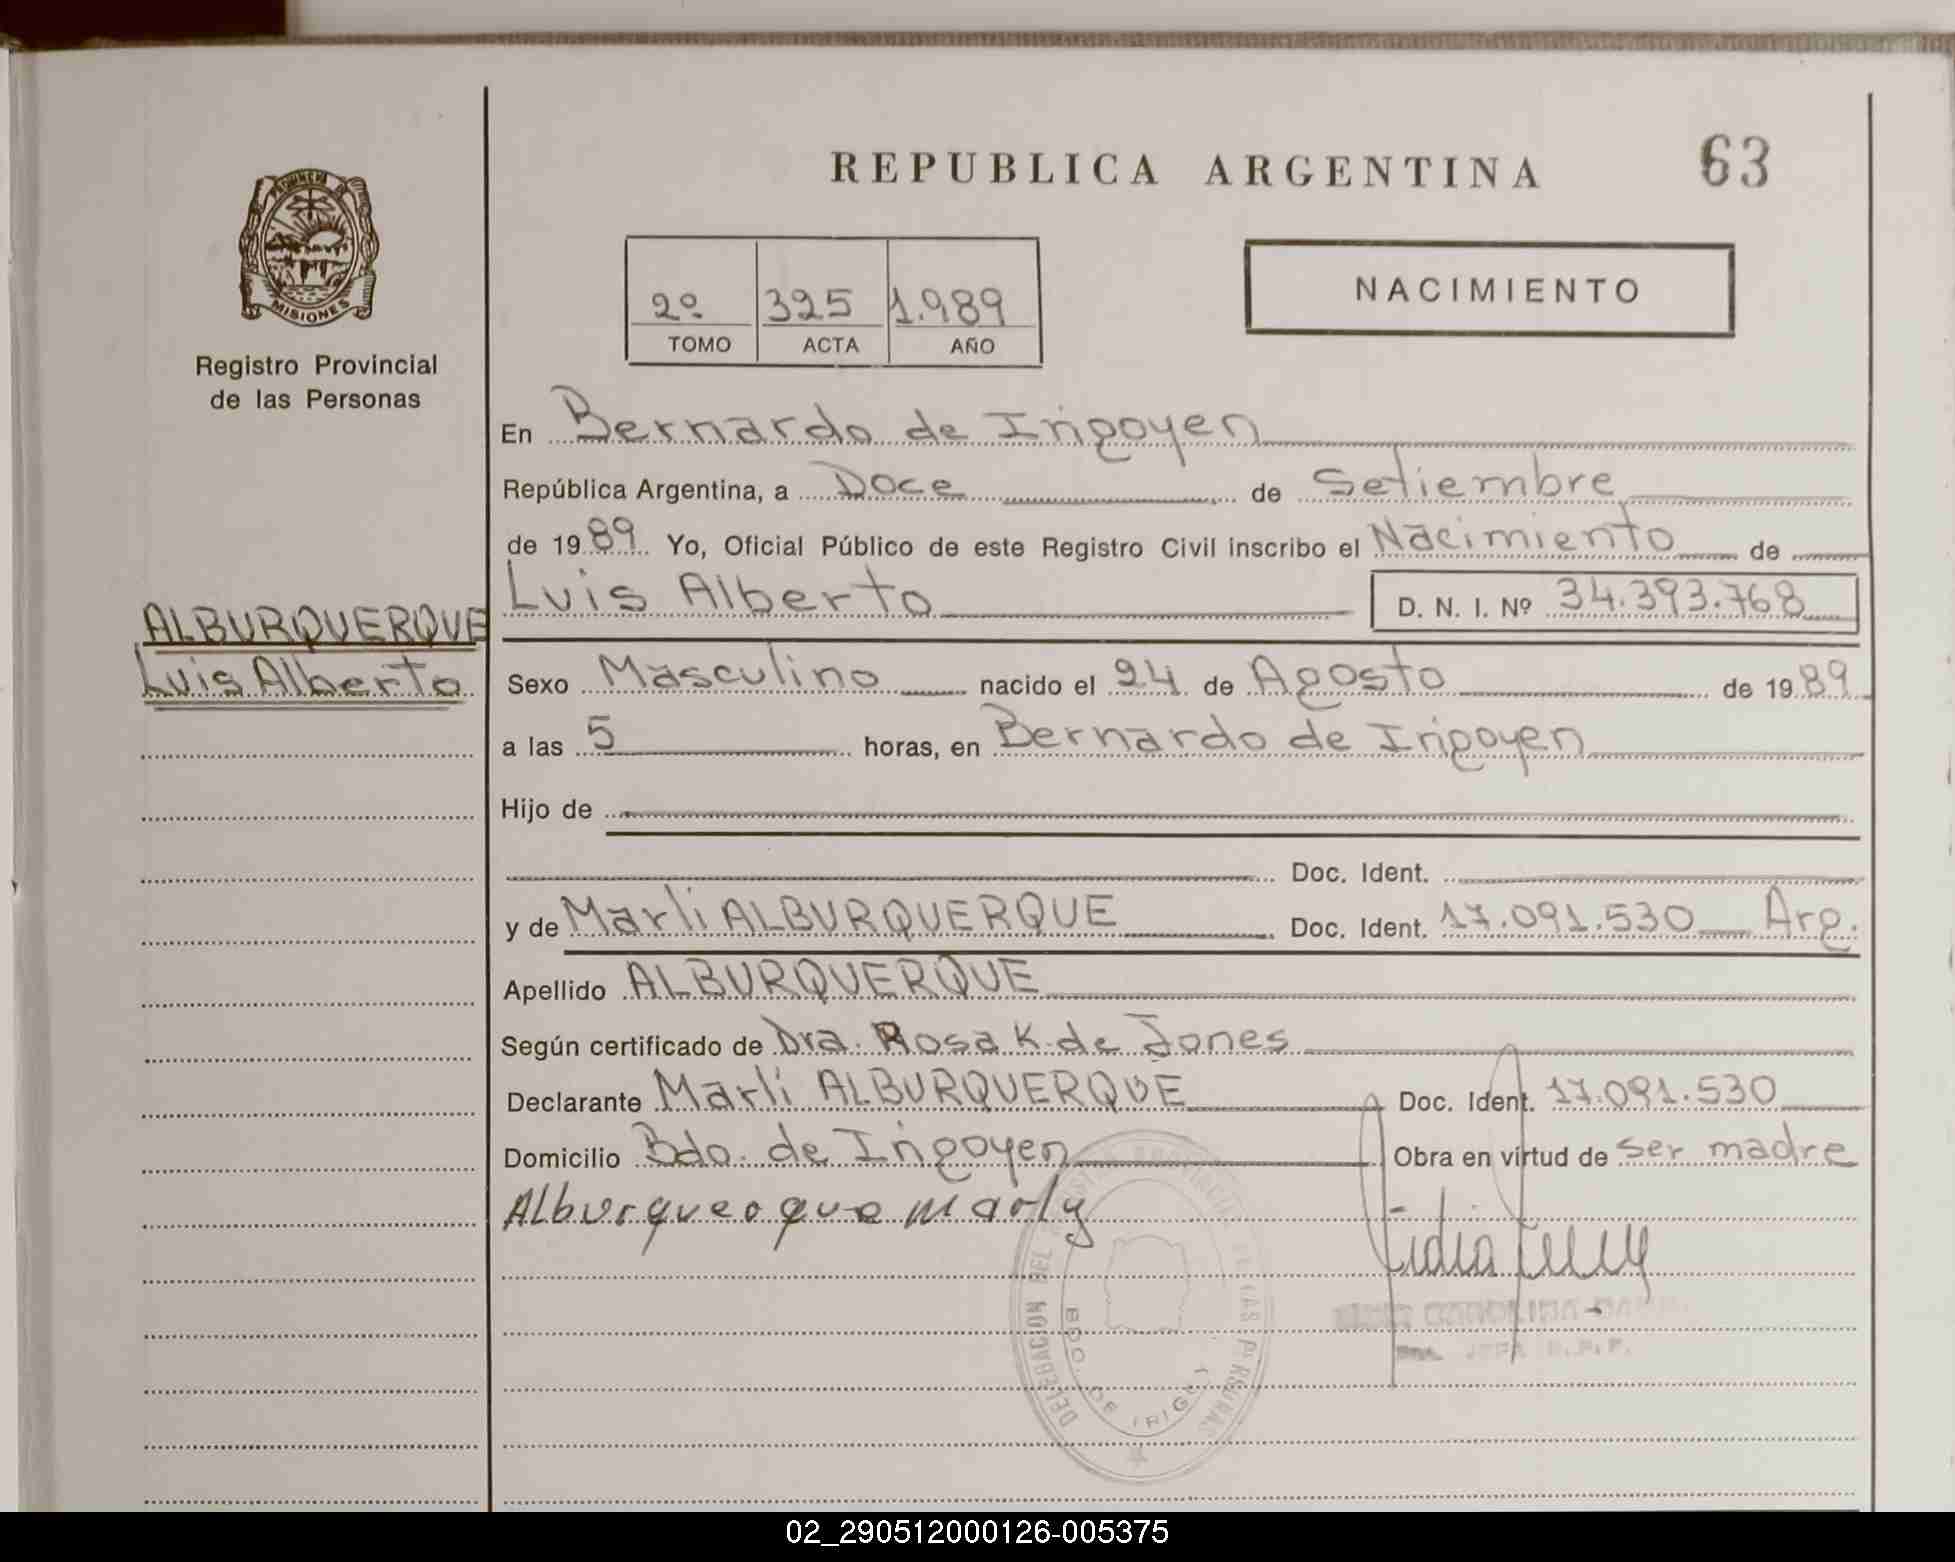 REPUBLICA ARGENTINA
63
PROVINCIA DE
MISIONES
Registro Provincial
de las Personas
2º 325 1.989
TOMO ACTA AÑO
NACIMIENTO
En Bernardo de Irigoyen
República Argentina, a Doce de Setiembre
de 1989 Yo, Oficial Público de este Registro Civil inscribo el Nacimiento de
Luis Alberto D. N. I. Nº 34.393.768
ALBURQUERQUE
Luis Alberto
Sexo Masculino nacido el 24 de Agosto de 1989
a las 5 horas, en Bernardo de Irigoyen
Hijo de
Doc. Ident.
y de Marli ALBURQUERQUE Doc. Ident. 17.091.530 Arg.
Apellido ALBURQUERQUE
Según certificado de Dra. Rosa K. de Jones
Declarante Marli ALBURQUERQUE Doc. Ident. 17.091.530
Domicilio Bdo. de Irigoyen Obra en virtud de ser madre
Alburquerque Marly
DELEGACION DEL REGISTRO PROVINCIAL DE LAS PERSONAS
BDO. DE IRIGOY
CAROLINA
JEFA
02_290512000126-005375